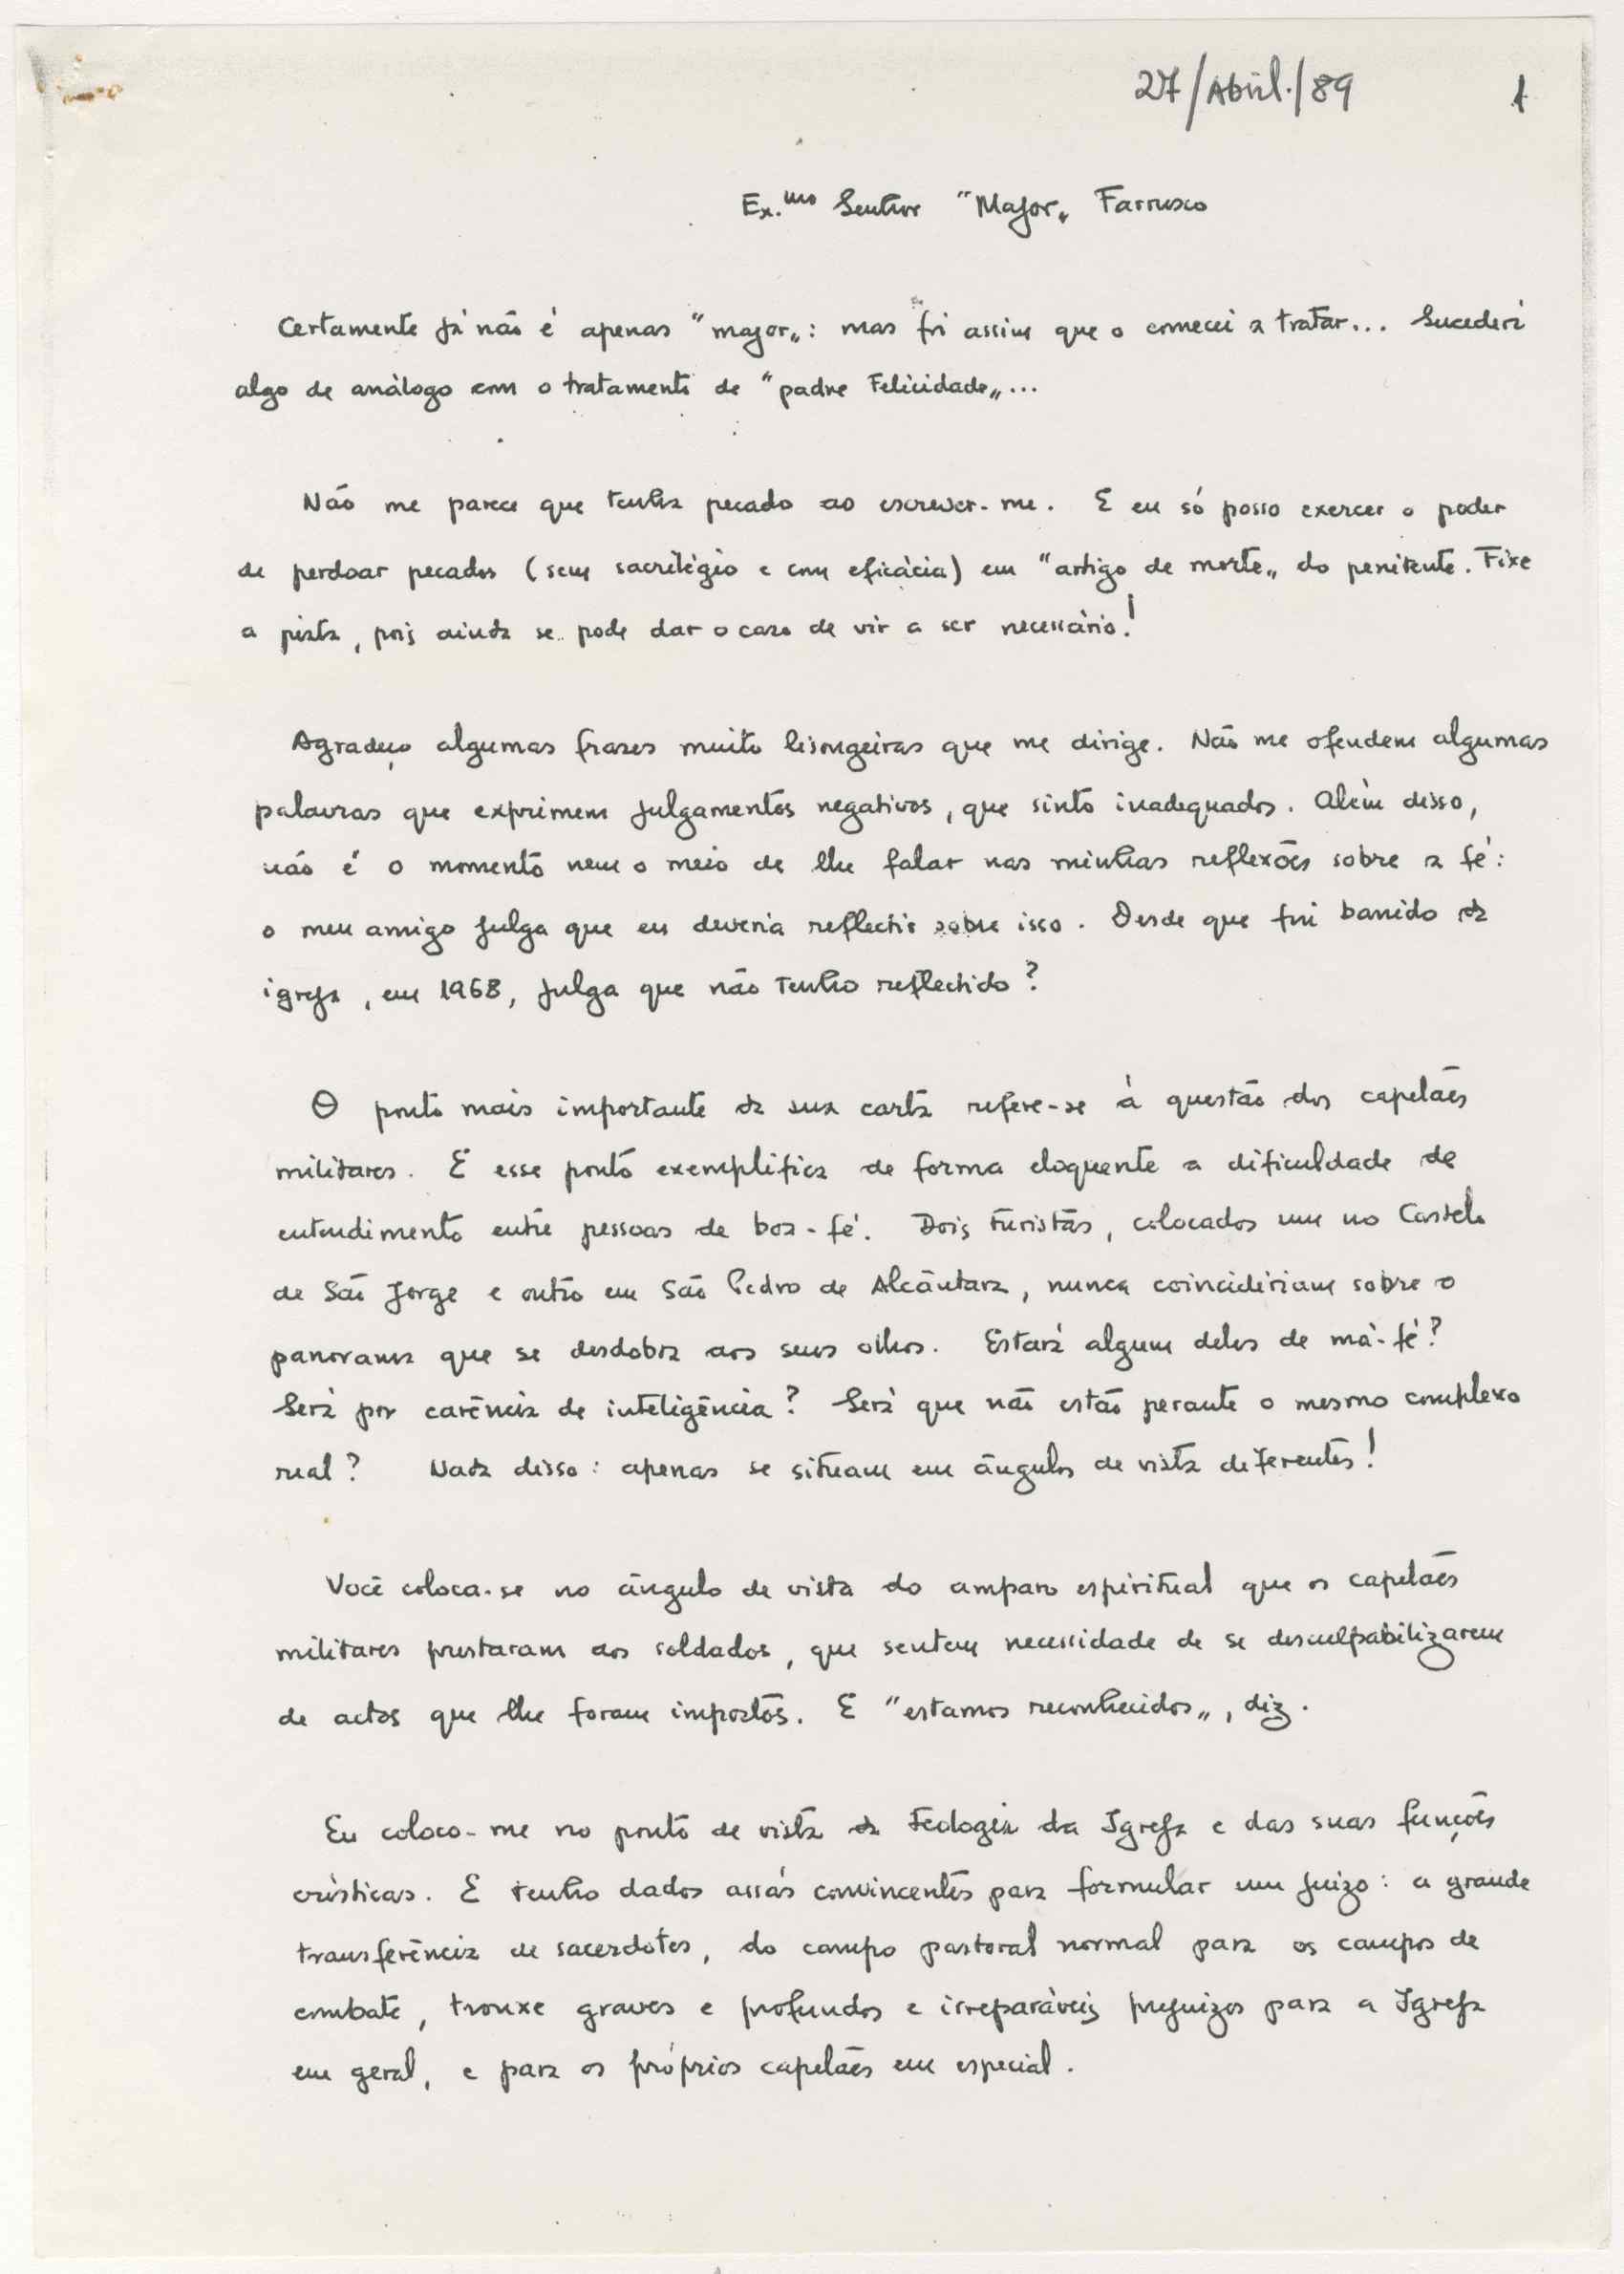 27/Abril./89 1
Ex.mo Senhor "Major" Farrusco
Certamente já não é apenas "major": mas foi assim que o comecei a tratar... Sucederá
algo de análogo com o tratamento de "padre Felicidade"...
Não me parece que tenha pecado ao escrever-me. E eu só posso exercer o poder
de perdoar pecados (sem sacrilégio e com eficácia) em "artigo de morte" do penitente. Fixe
a pista, pois ainda se pode dar o caso de vir a ser necessário!
Agradeço algumas frases muito lisongeiras que me dirige. Não me ofendem algumas
palavras que exprimem julgamentos negativos, que sinto inadequados. Além disso,
não é o momento nem o meio de lhe falar nas minhas reflexões sobre a fé:
o meu amigo julga que eu deveria reflectir sobre isso. Desde que fui banido da
igreja, em 1968, julga que não tenho reflectido?
O ponto mais importante da sua carta refere-se à questão dos capelães
militares. E esse ponto exemplifica de forma eloquente a dificuldade de
entendimento entre pessoas de boa-fé. Dois turistas, colocados um no Castelo
de São Jorge e outro em São Pedro de Alcântara, nunca coincidiriam sobre o
panorama que se desdobra aos seus olhos. Estará algum deles de má-fé?
Será por carência de inteligência? Será que não estão perante o mesmo complexo
real? Nada disso: apenas se situam em ângulos de vista diferentes!
Você coloca-se no ângulo de vista do amparo espiritual que os capelães
militares prestaram aos soldados, que sentem necessidade de se desculpabilizarem
de actos que lhe foram impostos. E "estamos reconhecidos", diz.
Eu coloco-me no ponto de vista da Teologia da Igreja e das suas funções
crísticas. E tenho dados assás convincentes para formular um juizo: a grande
transferência de sacerdotes, do campo pastoral normal para os campos de
combate, trouxe graves e profundos e irreparáveis prejuizos para a Igreja
em geral, e para os próprios capelães em especial.